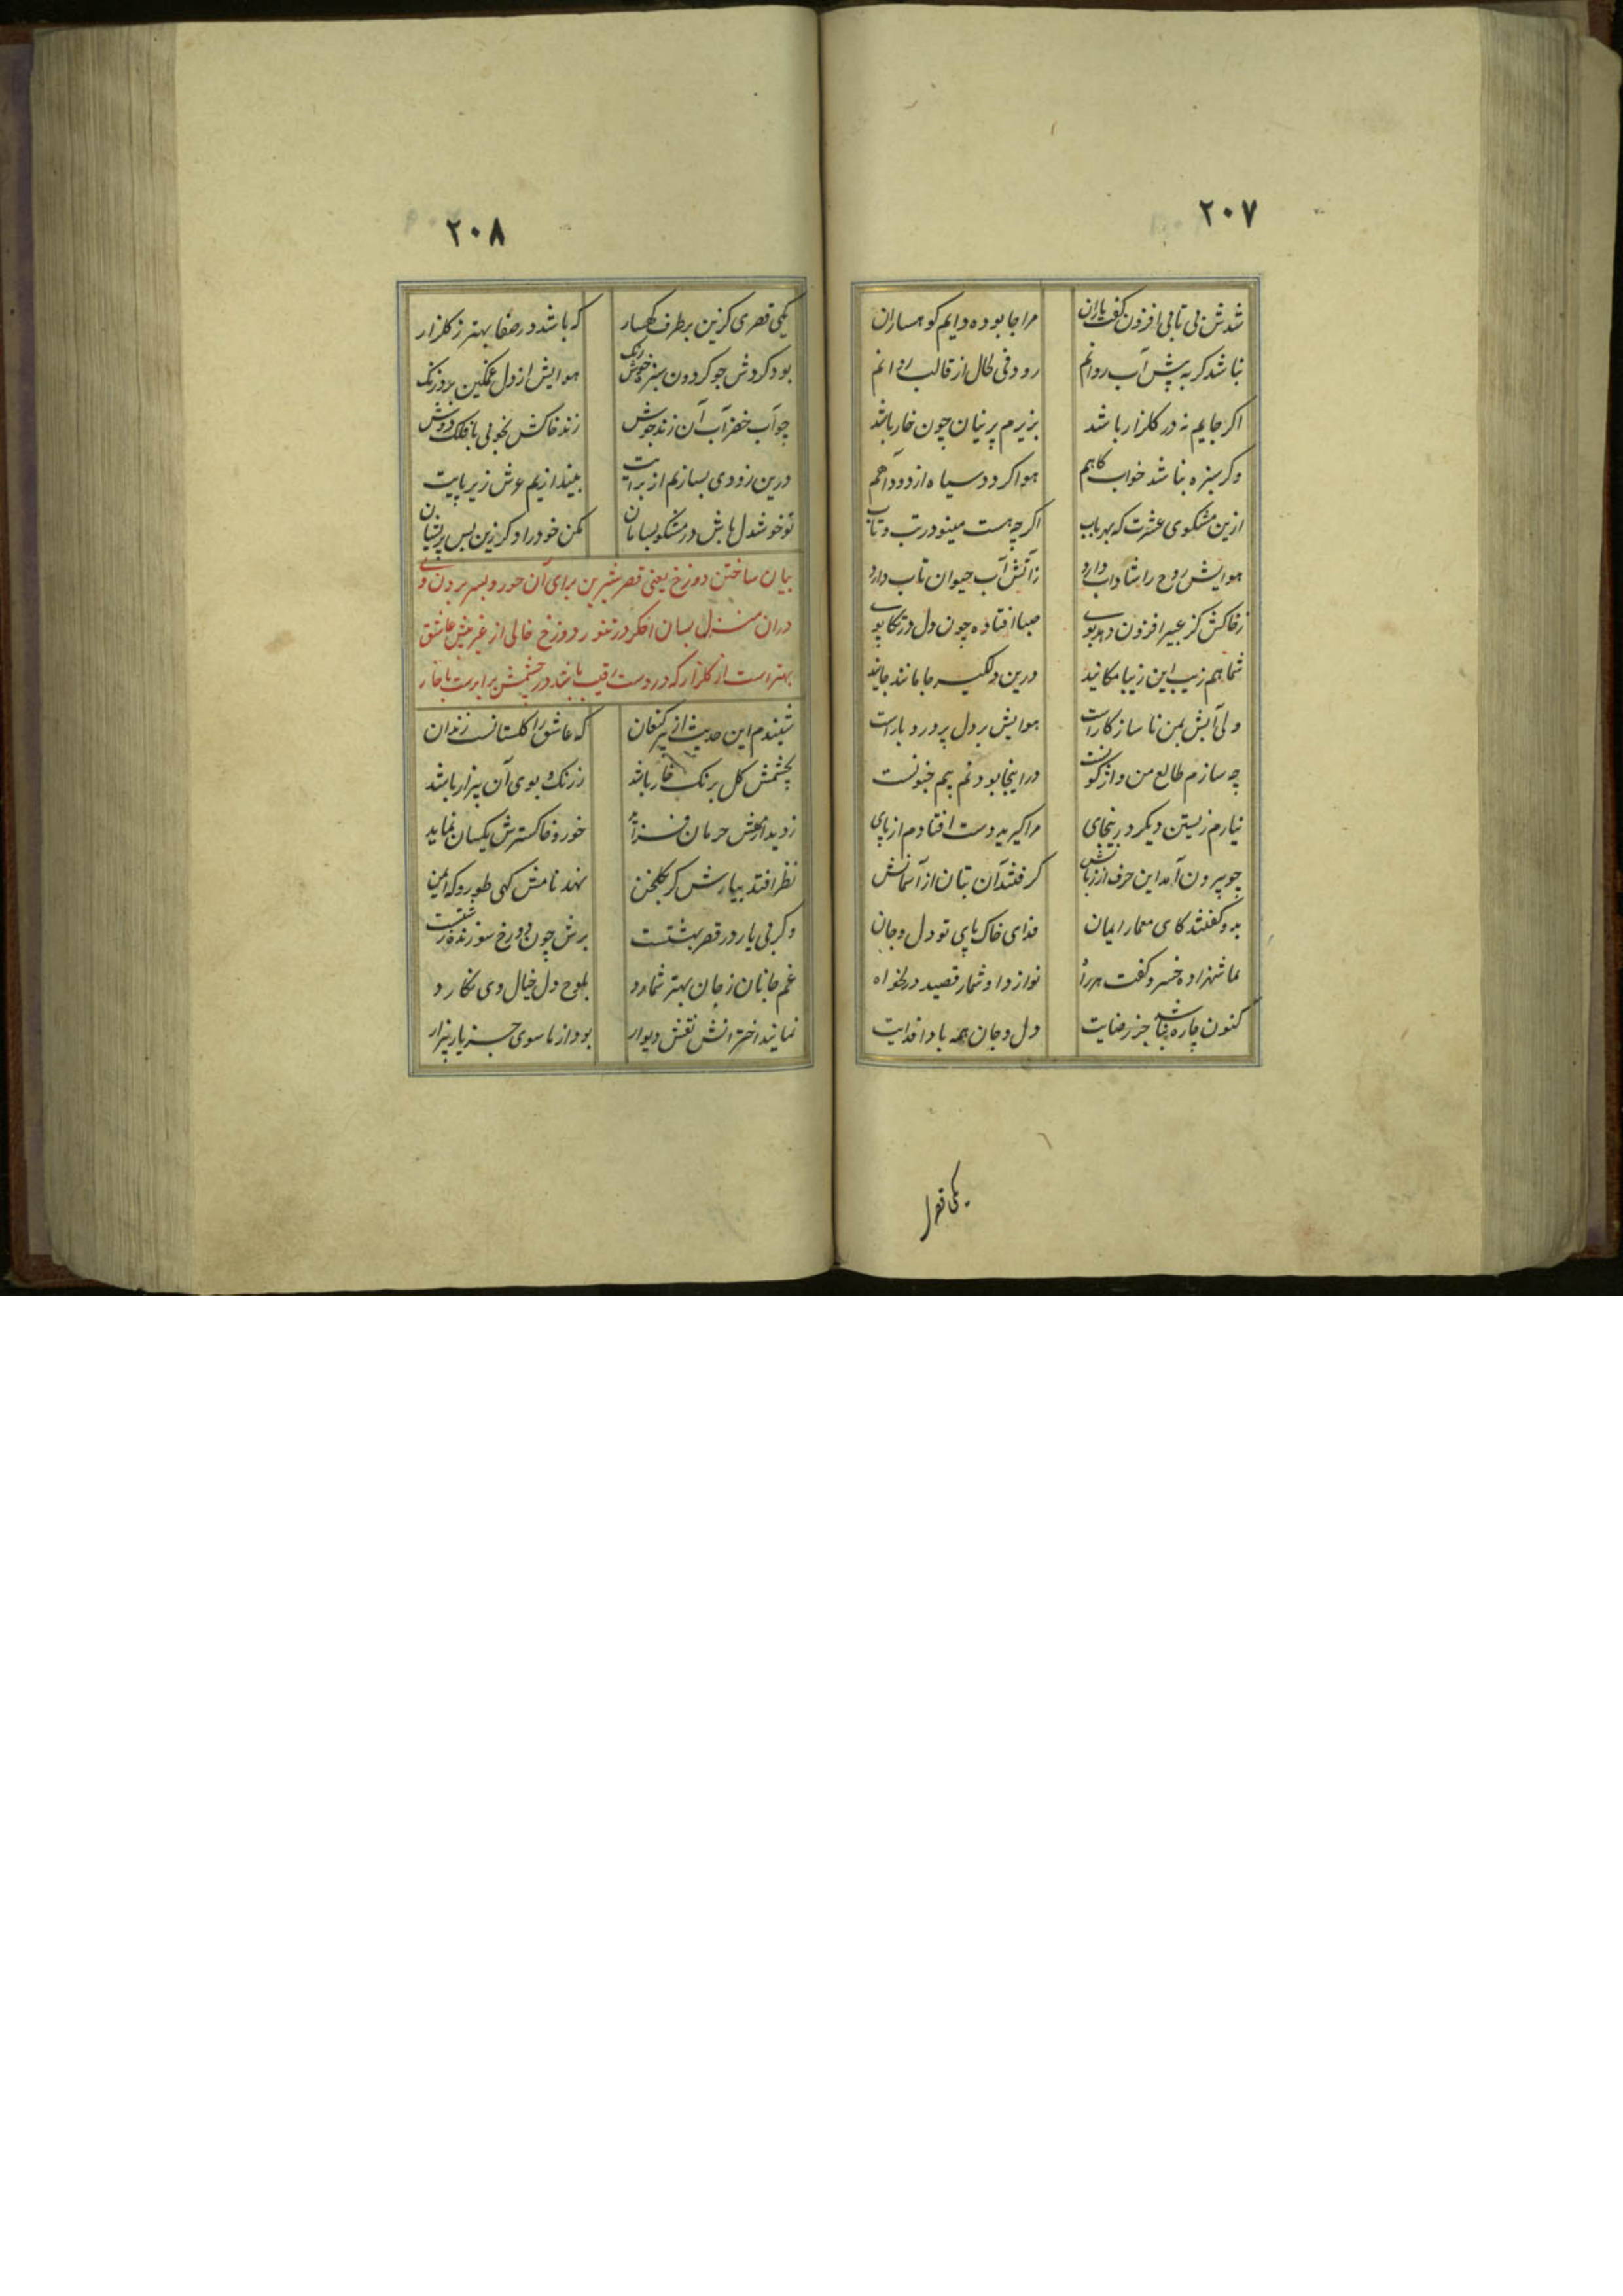 ۲۰۷
شدش بی تابی افزون گفت یاران مرا جا بوده دایم کوهساران
نباشد کر به پیش آب روانم رود فی الحال از قالب روانم
اکر جایم نه در کلزار باشد بزیرم پرنیان چون خار باشد
وکر سبزه نباشد خوابکاهم هوا کردد سیاه از دود آهم
ازین مشکوی عشرت که بهر باب اکرچه هست مینو در تب و تاب
هوایش روح را شاداب دارد ز آتش آب حیوان تاب دارد
ز خاکش کز عبیر افزون دهد بوی صبا افتاده چون دل در تکاپوی
شما هم زیب این زیبا مکانید درین دلکیر جا مانند جانید
ولی آبش بمن ناسازکارست هوایش بر دل پر درد بارست
چه سازم طالع من واژکونست در اینجا بودنم بیم جنونست
نیارم زیستن دیکر درینجای مرا کیرید دست افتادم از پای
چو بیرون آمد این حرف از زبانش کرفتند آن بتان از آسمانش
بدو کفتند کای معمار ایمان فدای خاک پای تو دل و جان
بما شهزاده خسرو کفت هر راه نوازد او شمار قصید دلخواه
کنون چاره نباشد جز رضایت دل و جان همه بادا فدایت
یکی قصر
۲۰۸
یکی قصری کزین بر طرف کهسار که باشد در صفا بهتر ز کلزار
بود کردش چو کردون سبز خوش رنک هوایش از دل غمکین برد زنک
چو آب خضر آب آن زند جوش زند خاکش بخوبی با فلک دوش
درین زودی بسازیم از برایت بیندازیم عرش زیر پایت
تو خوشدل باش در مشکو بسامان مکن خود را دکر زین پس پریشان
بیان ساختن دوزخ یعنی قصر شیرین برای آن حور و بسر بردن وی
دران منزل بسان اخکر در تنور دوزخ خالی از غیر پیش عاشق
بهتر است از کلزار که در دست رقیب باشد در چشمش برابرست با خار
شنیدم این حدیث از پیر کنعان که عاشق را کلستانست زندان
بچشمش کل برنک خار باشد ز رنک و بوی آن بیزار باشد
ز دیدارکلش حرمان فزاید خور و خاکسترش یکسان نماید
نظر افتد بیارش کر بکلخن نهد نامش کهی طور و که ایمن
وکر بی یار در قصر بهشتست برش چون دوزخ سوزنده زشتست
غم جانان ز جان بهتر شمارد بلوح دل خیال وی نکارد
نمایند اخترانش نقش دیوار بود از ماسوی جز یار بیزار